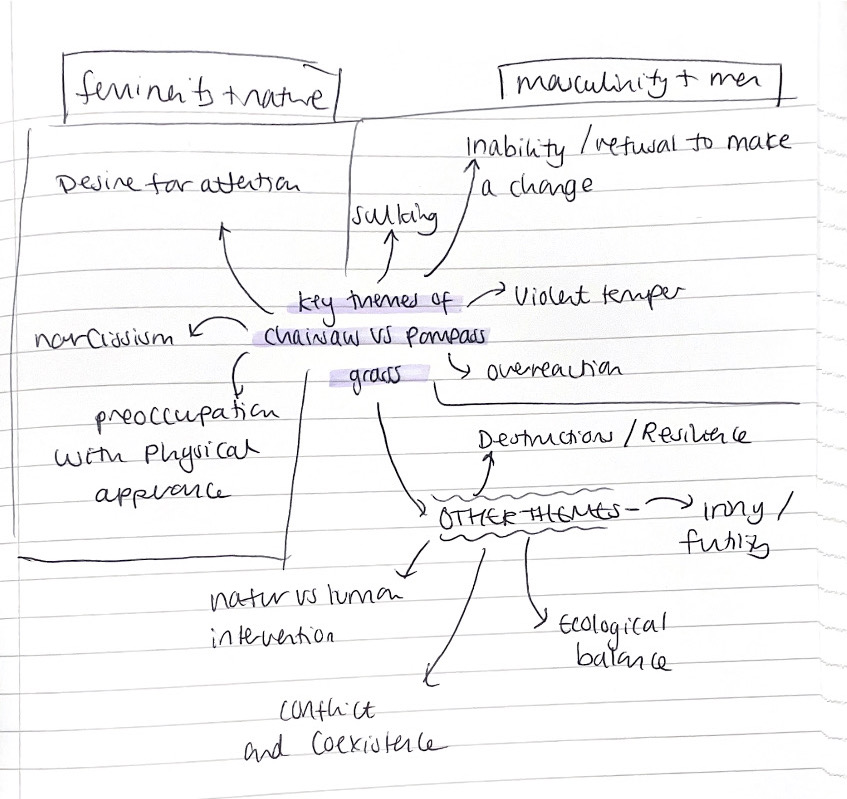 femininity + nature
masculinity + men
Inability / refusal to make
a change
Desire for attention
sulking
key themes of
chainsaw vs pompass
grass
Violent temper
narcissism
overreaction
preoccupation
with physical
apprance
Destructions / Resilience
OTHER THEMES -
irony /
futility
natur vs human
intervention
Ecological
balance
conflict
and coexistence